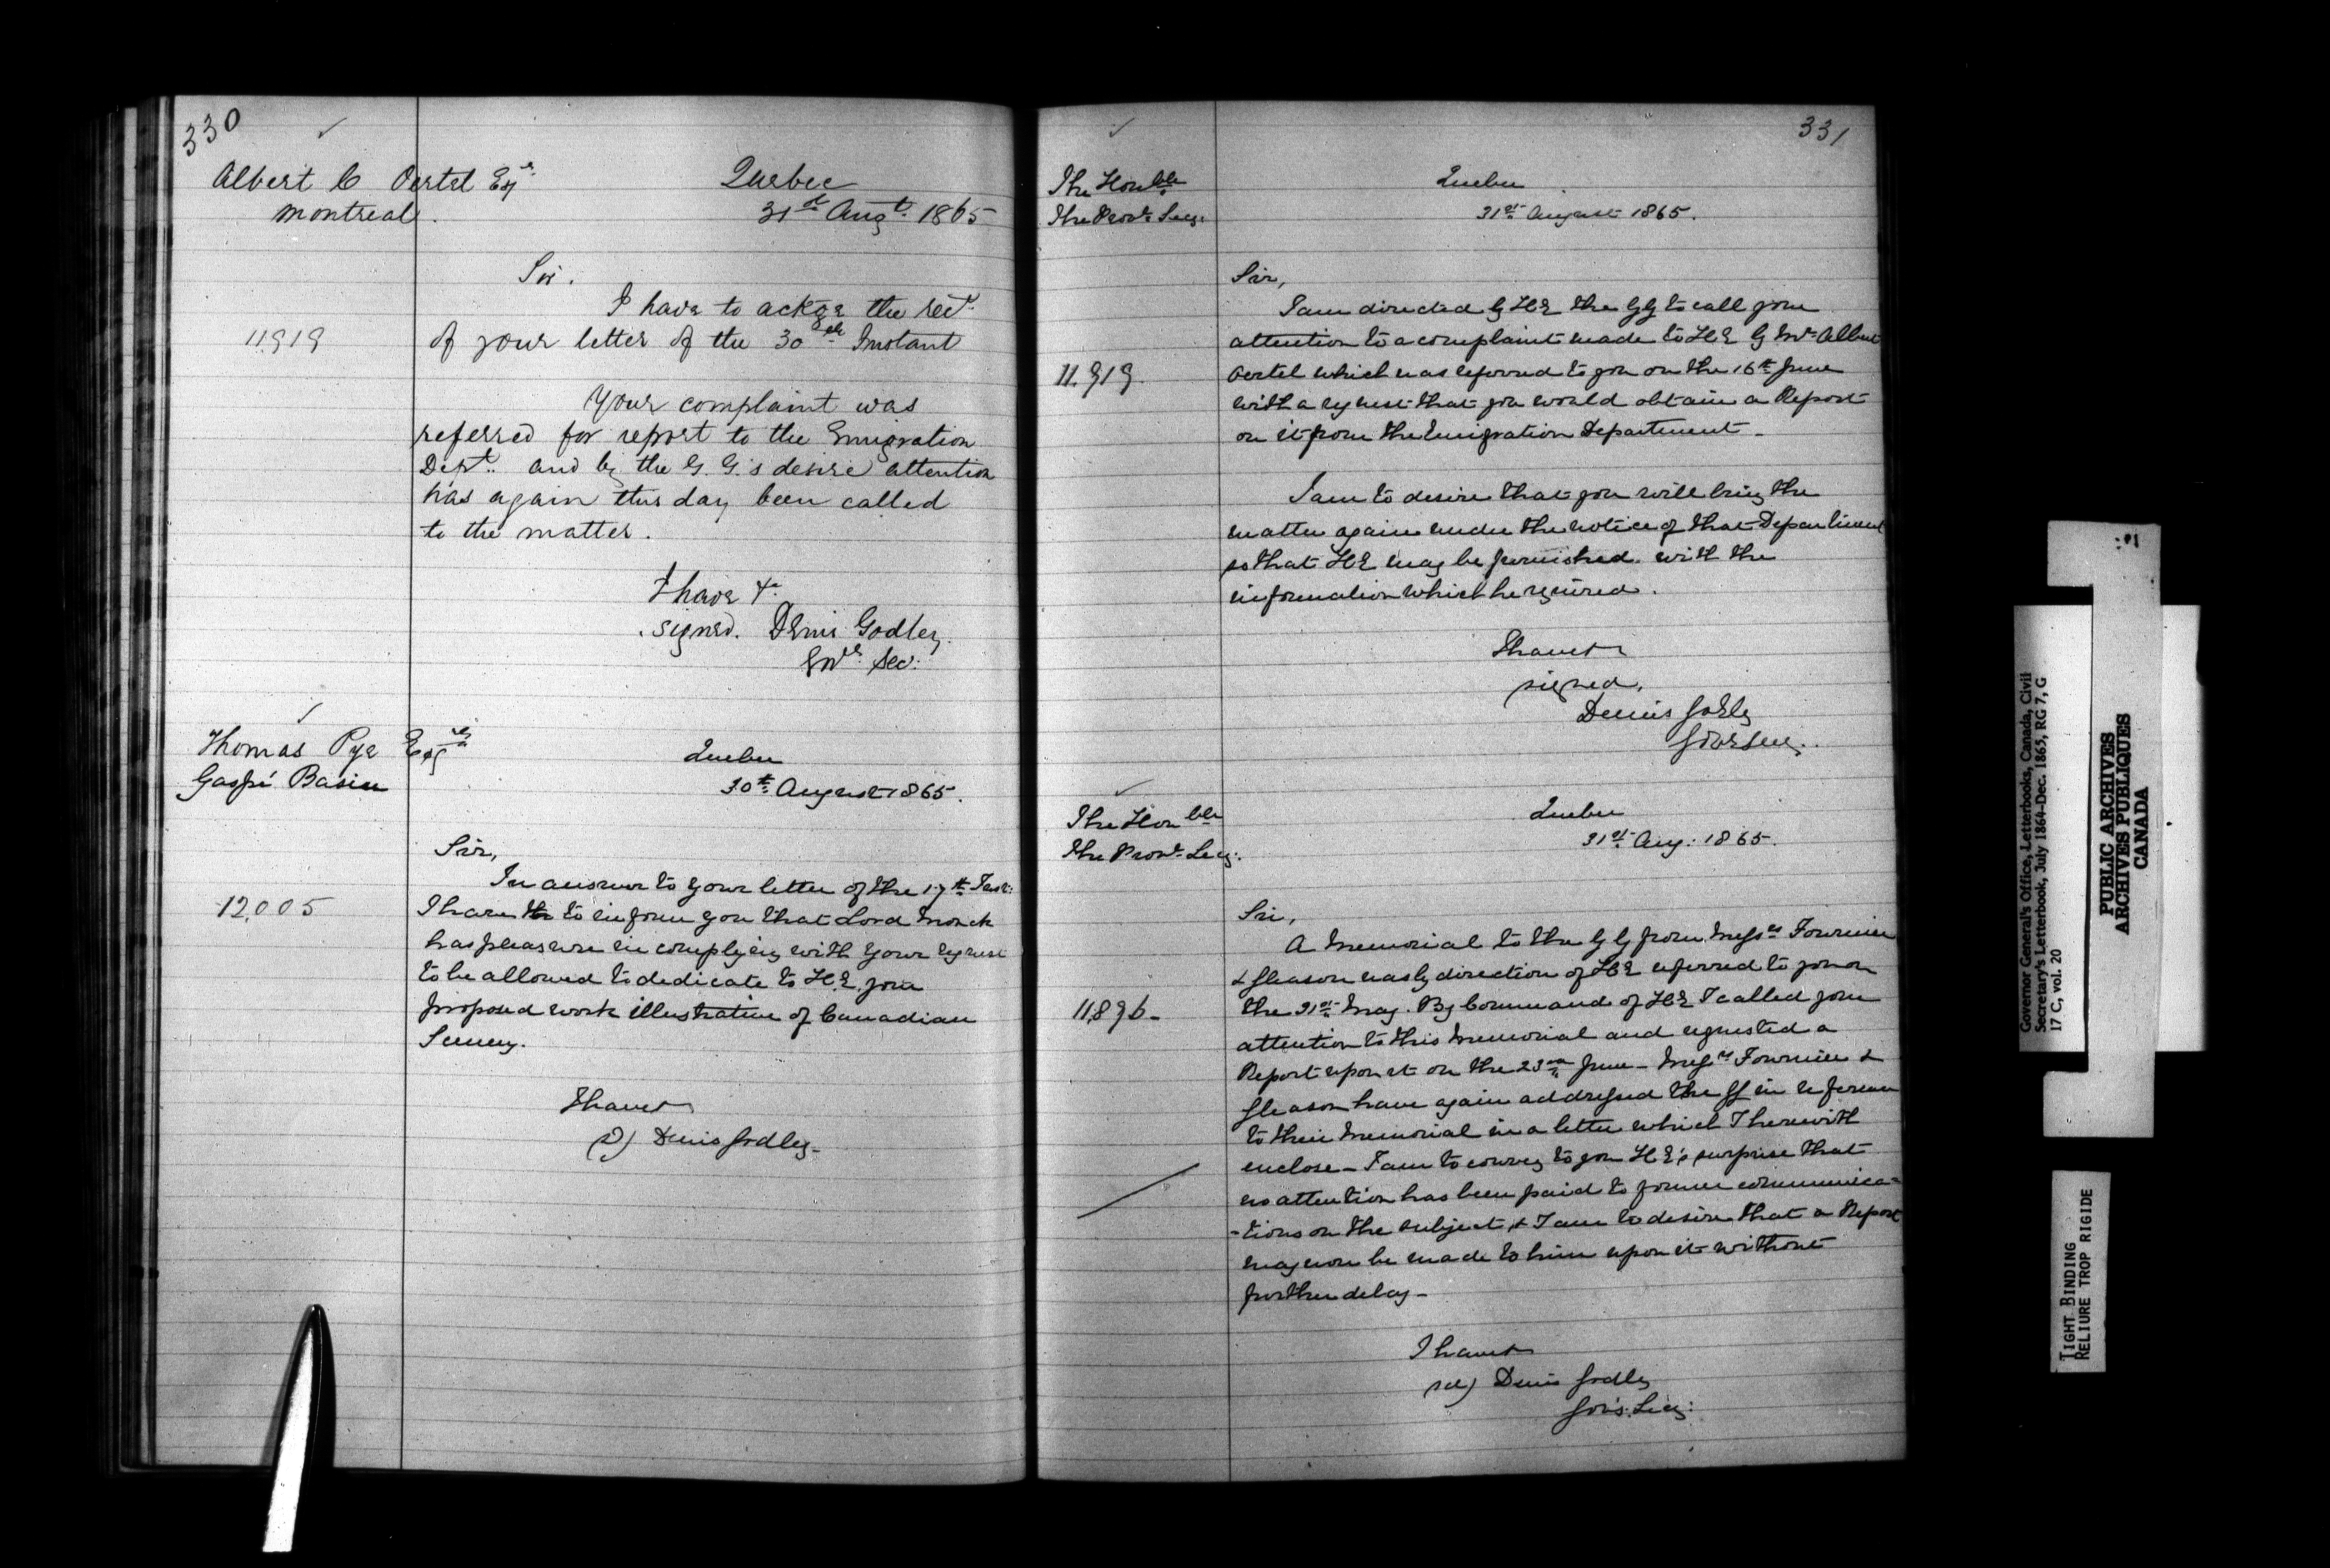 330
Albert C Oertel Esqr.
Montreal.
Quebec
31st Augt. 1865
Sir.
I have to ackge the rect.
11919
of your letter of the 30th Instant
Your complaint was
referred for report to the Emigration
Dept. and by the G. G.'s desire attention
has again this day been called
to the matter.
I have &c
signed. Denis Godley.
Govr. Sec.
Thomas Pye Esqre
Gaspé Basin
Quebec
30th August 1865.
Sir,
In answer to your letter of the 17th Inst:
12,005
I have to inform you that Lord Monck
has pleasure in complying with your request
to be allowed to dedicate to H.E. your
proposed work illustrative of Canadian
Scenery.
I have &c
(s) Denis Godley-
331
The Honble
The Provl. Secy.
Quebec
31st August 1865.
Sir,
I am directed by H E the GG to call your
attention to a complaint made to H E by Mr. Albert
11.919.
Oertel which was referred to you on the 16th June
with a request that you would obtain a Report
on it from the Emigration Department-
I am to desire that you will bring the
matter again under the notice of that Department
so that H E may be furnished with the
information which he required.
I have &c
signed,
Denis Godley
Govr Secy.
The Honble
The Provl. Secy.
Quebec
31st Aug: 1865.
Sir,
A Memorial to the G G from Messrs Fournier
& Gleason was by direction of H E referred to you on
11,896-
the 31st May. By Command of H E I called your
attention to this Memorial and requested a
Report upon it on the 23rd June- Messrs Fournier &
Gleason have again addressed the GG in reference
to their Memorial in a letter which I herewith
enclose- I am to convey to you H E's surprise that
no attention has been paid to former communica-
-tions on the subject, & I am to desire that a Report
may now be made to him upon it without
further delay-
I have &c
(sd) Denis Godley
Gov's. Secy:
Governor General's Office, Letterbooks, Canada, Civil
Secretary's Letterbook, July 1864-Dec. 1865, RG 7, G
17 C, vol. 20
PUBLIC ARCHIVES
ARCHIVES PUBLIQUES
CANADA
TIGHT BINDING
RELIURE TROP RIGIDE